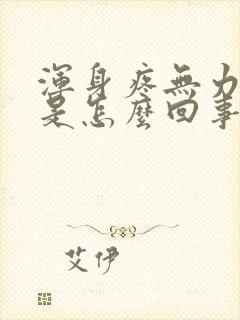 渾身疼無力
是怎麼回事
艾伊